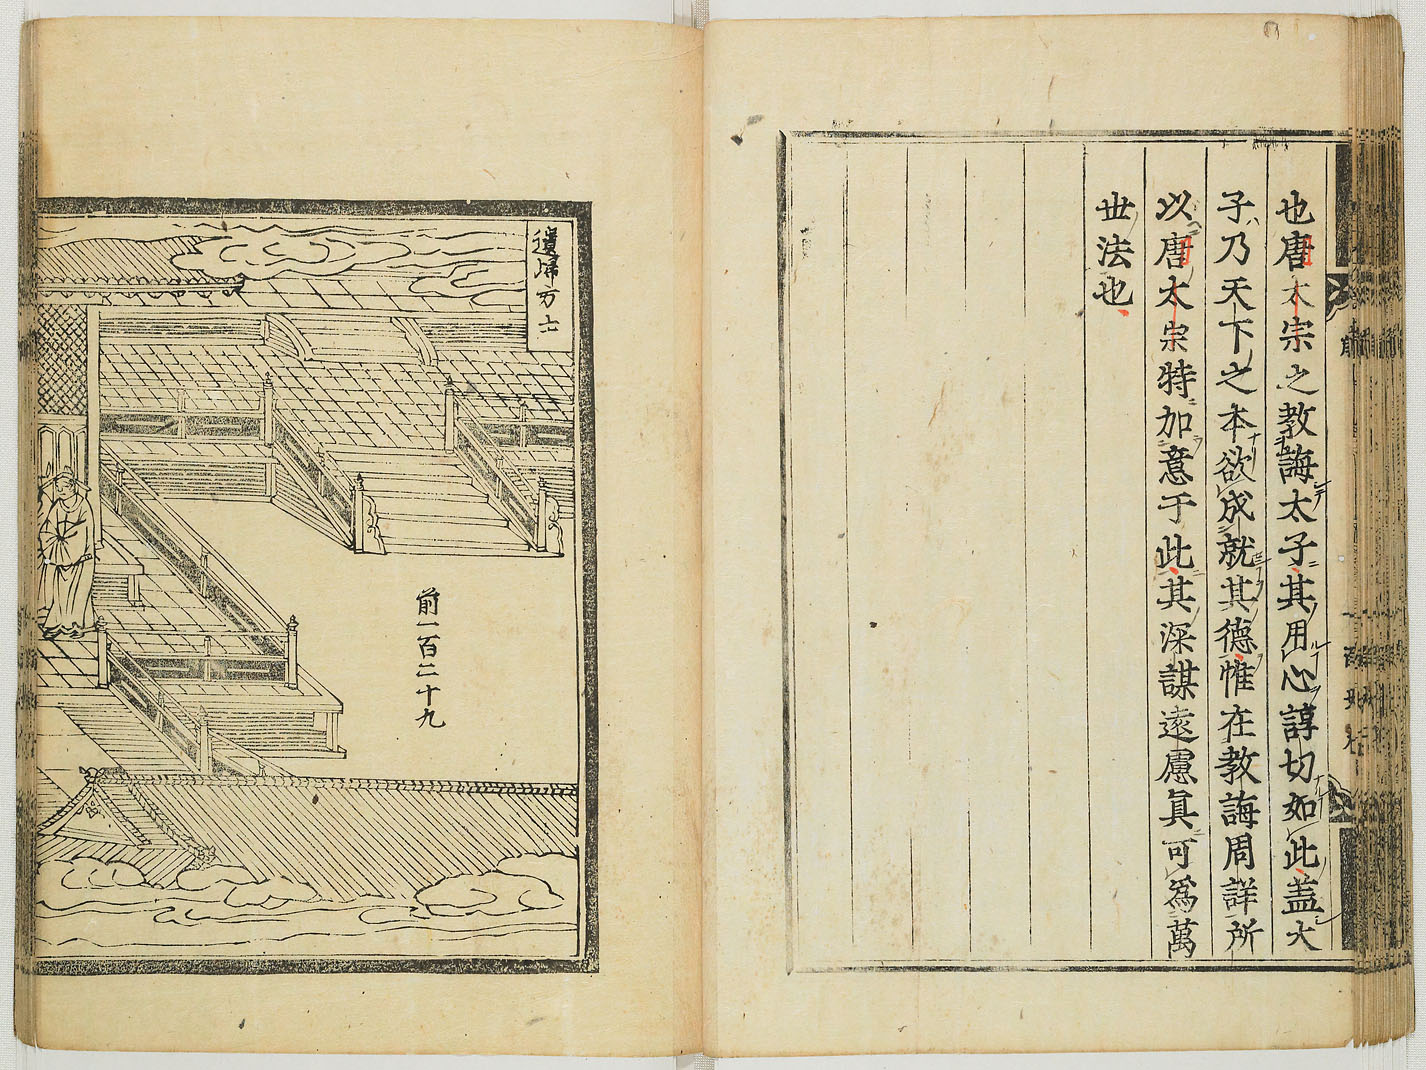 也唐太宗之教誨太子其用心諄切如此盖太
子乃天下之本欲成就其德惟在教誨周詳所
以唐太宗特加意于此其深謀遠慮眞可爲萬
世法也
遺歸方士
前一百二十九